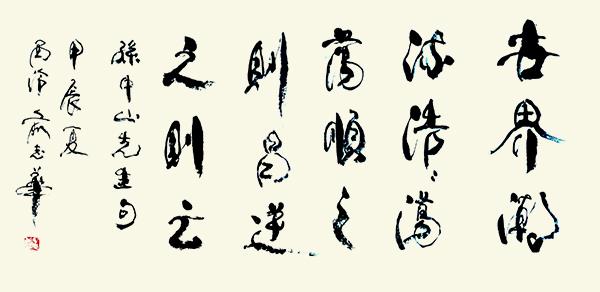 世界潮
流浩〻蕩
蕩順之
則昌逆
之則亡
孫中山先生句
甲辰夏
西泠志華